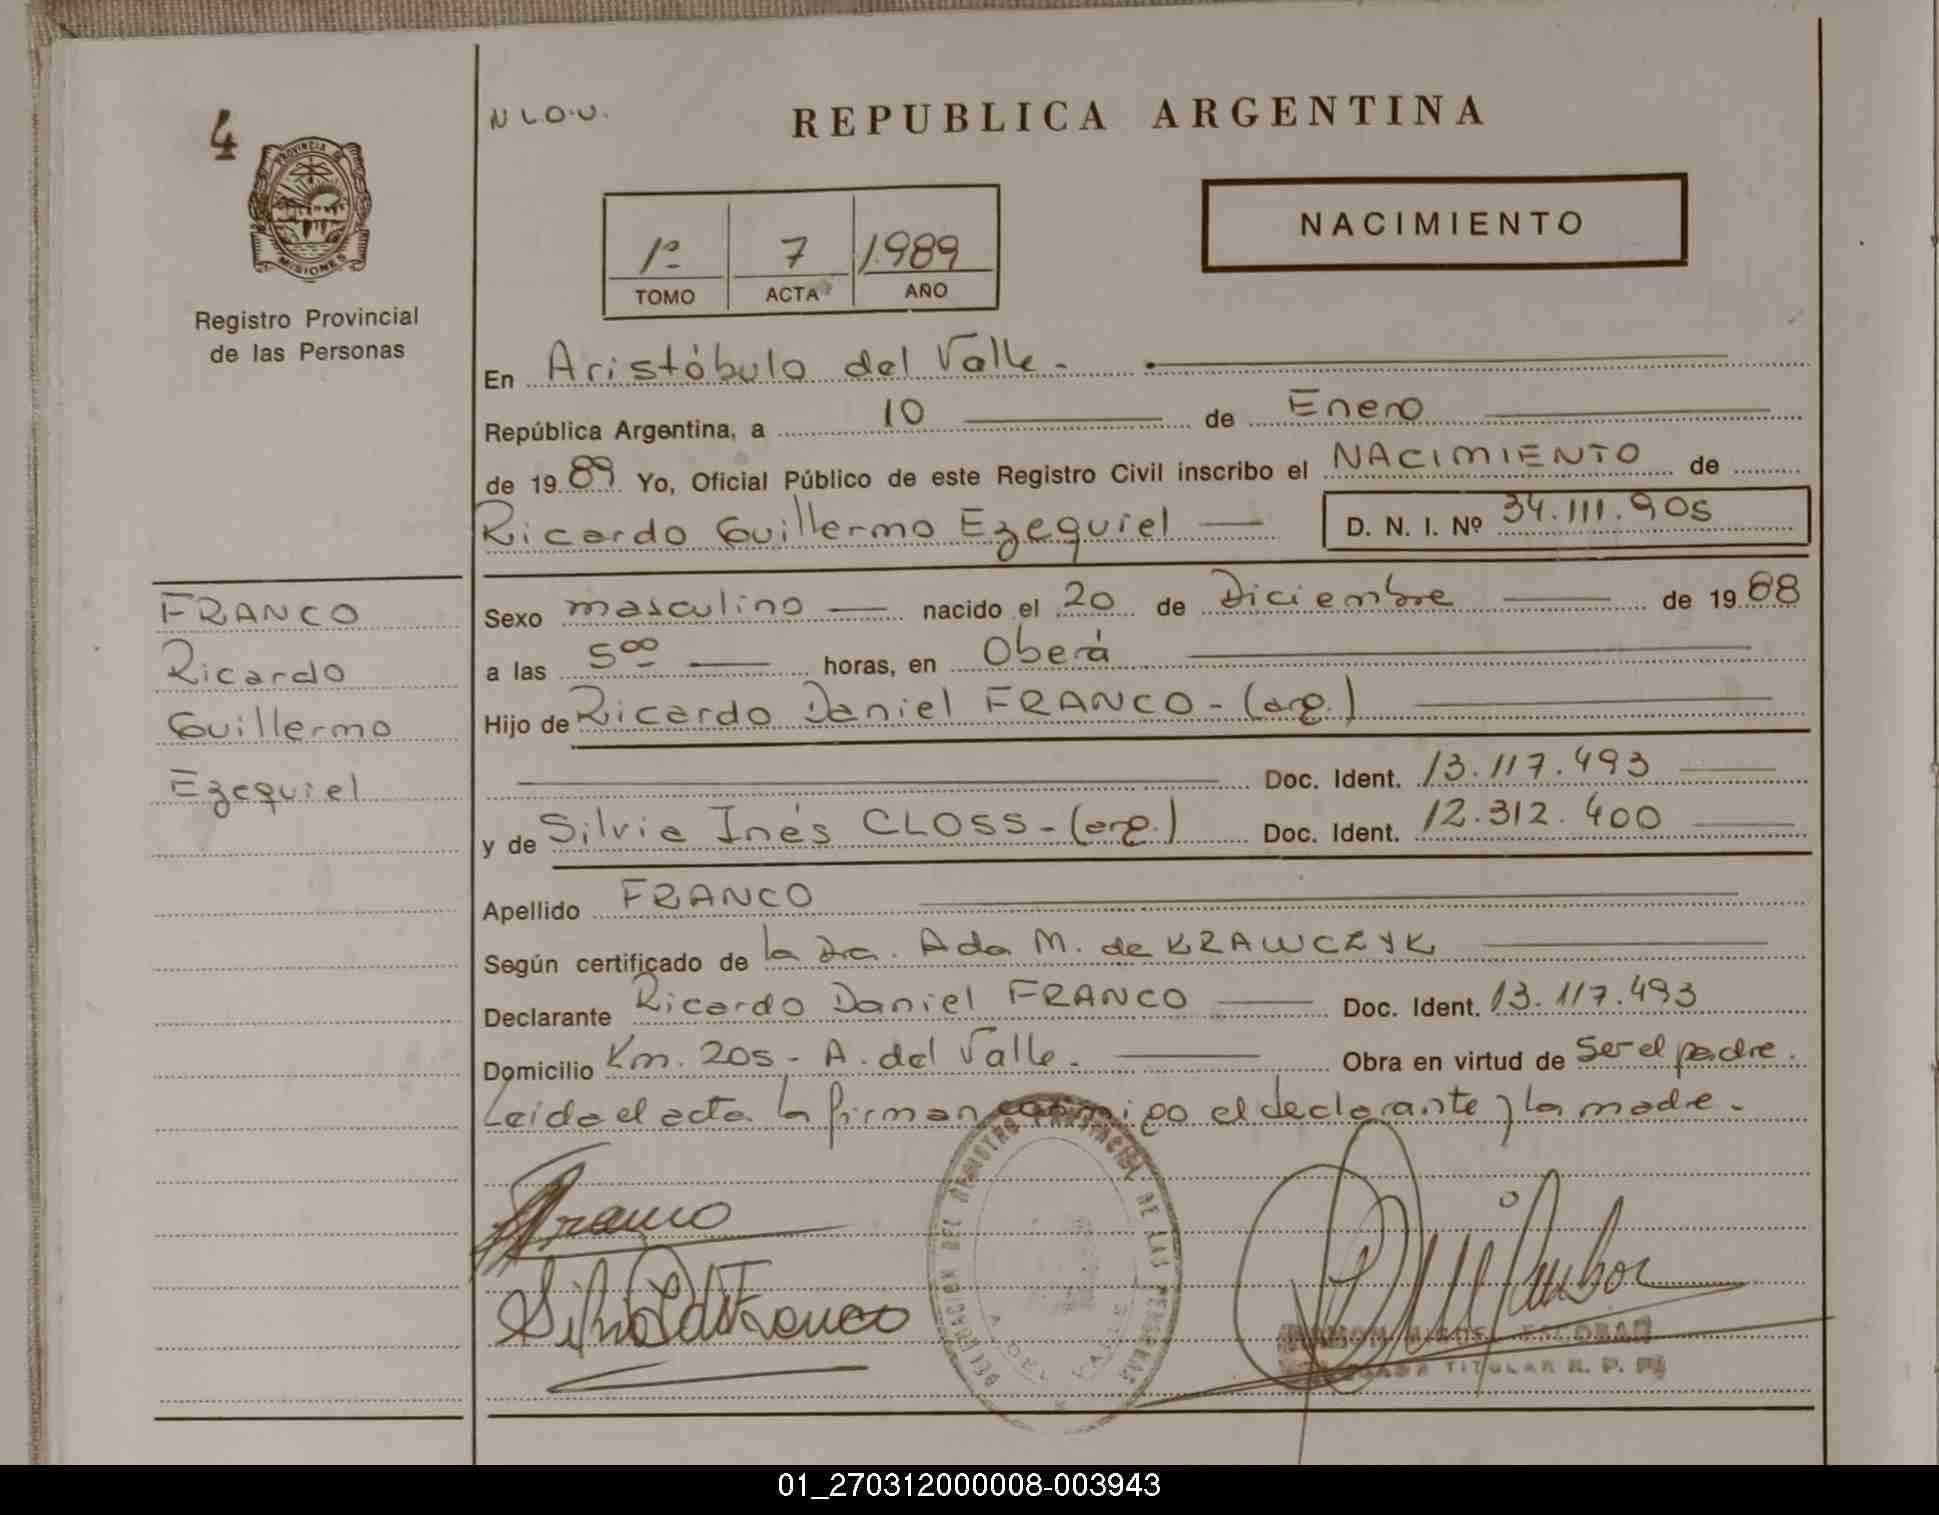 4
PROVINCIA DE
MISIONES
Registro Provincial
de las Personas
N L O.U.
REPUBLICA ARGENTINA
NACIMIENTO
1º 7 1.989
TOMO ACTA AÑO
En Aristóbulo del Valle.-
República Argentina, a 10 de Enero
de 1989 Yo, Oficial Público de este Registro Civil inscribo el NACIMIENTO de
Ricardo Guillermo Ezequiel D. N. I. Nº 34.111.905
FRANCO
Ricardo
Guillermo
Ezequiel
Sexo masculino nacido el 20 de Diciembre de 1988
a las 5⁰⁰ horas, en Oberá
Hijo de Ricardo Daniel FRANCO - (arg.)
Doc. Ident. 13.117.493
y de Silvia Inés CLOSS - (arg.) Doc. Ident. 12.312.400
Apellido FRANCO
Según certificado de la Dra. Ada M. de KRAWCZYK
Declarante Ricardo Daniel FRANCO Doc. Ident. 13.117.493
Domicilio Km. 205 - A. del Valle. Obra en virtud de ser el padre.
Leída el acta la firman conmigo el declarante y la madre.
Franco
DELEGACION DEL REGISTRO PROVINCIAL DE LAS PERSONAS
A. DEL VALLE
Silvia de Franco
ESCOBAR
TITULAR R. P. P.
01_270312000008-003943